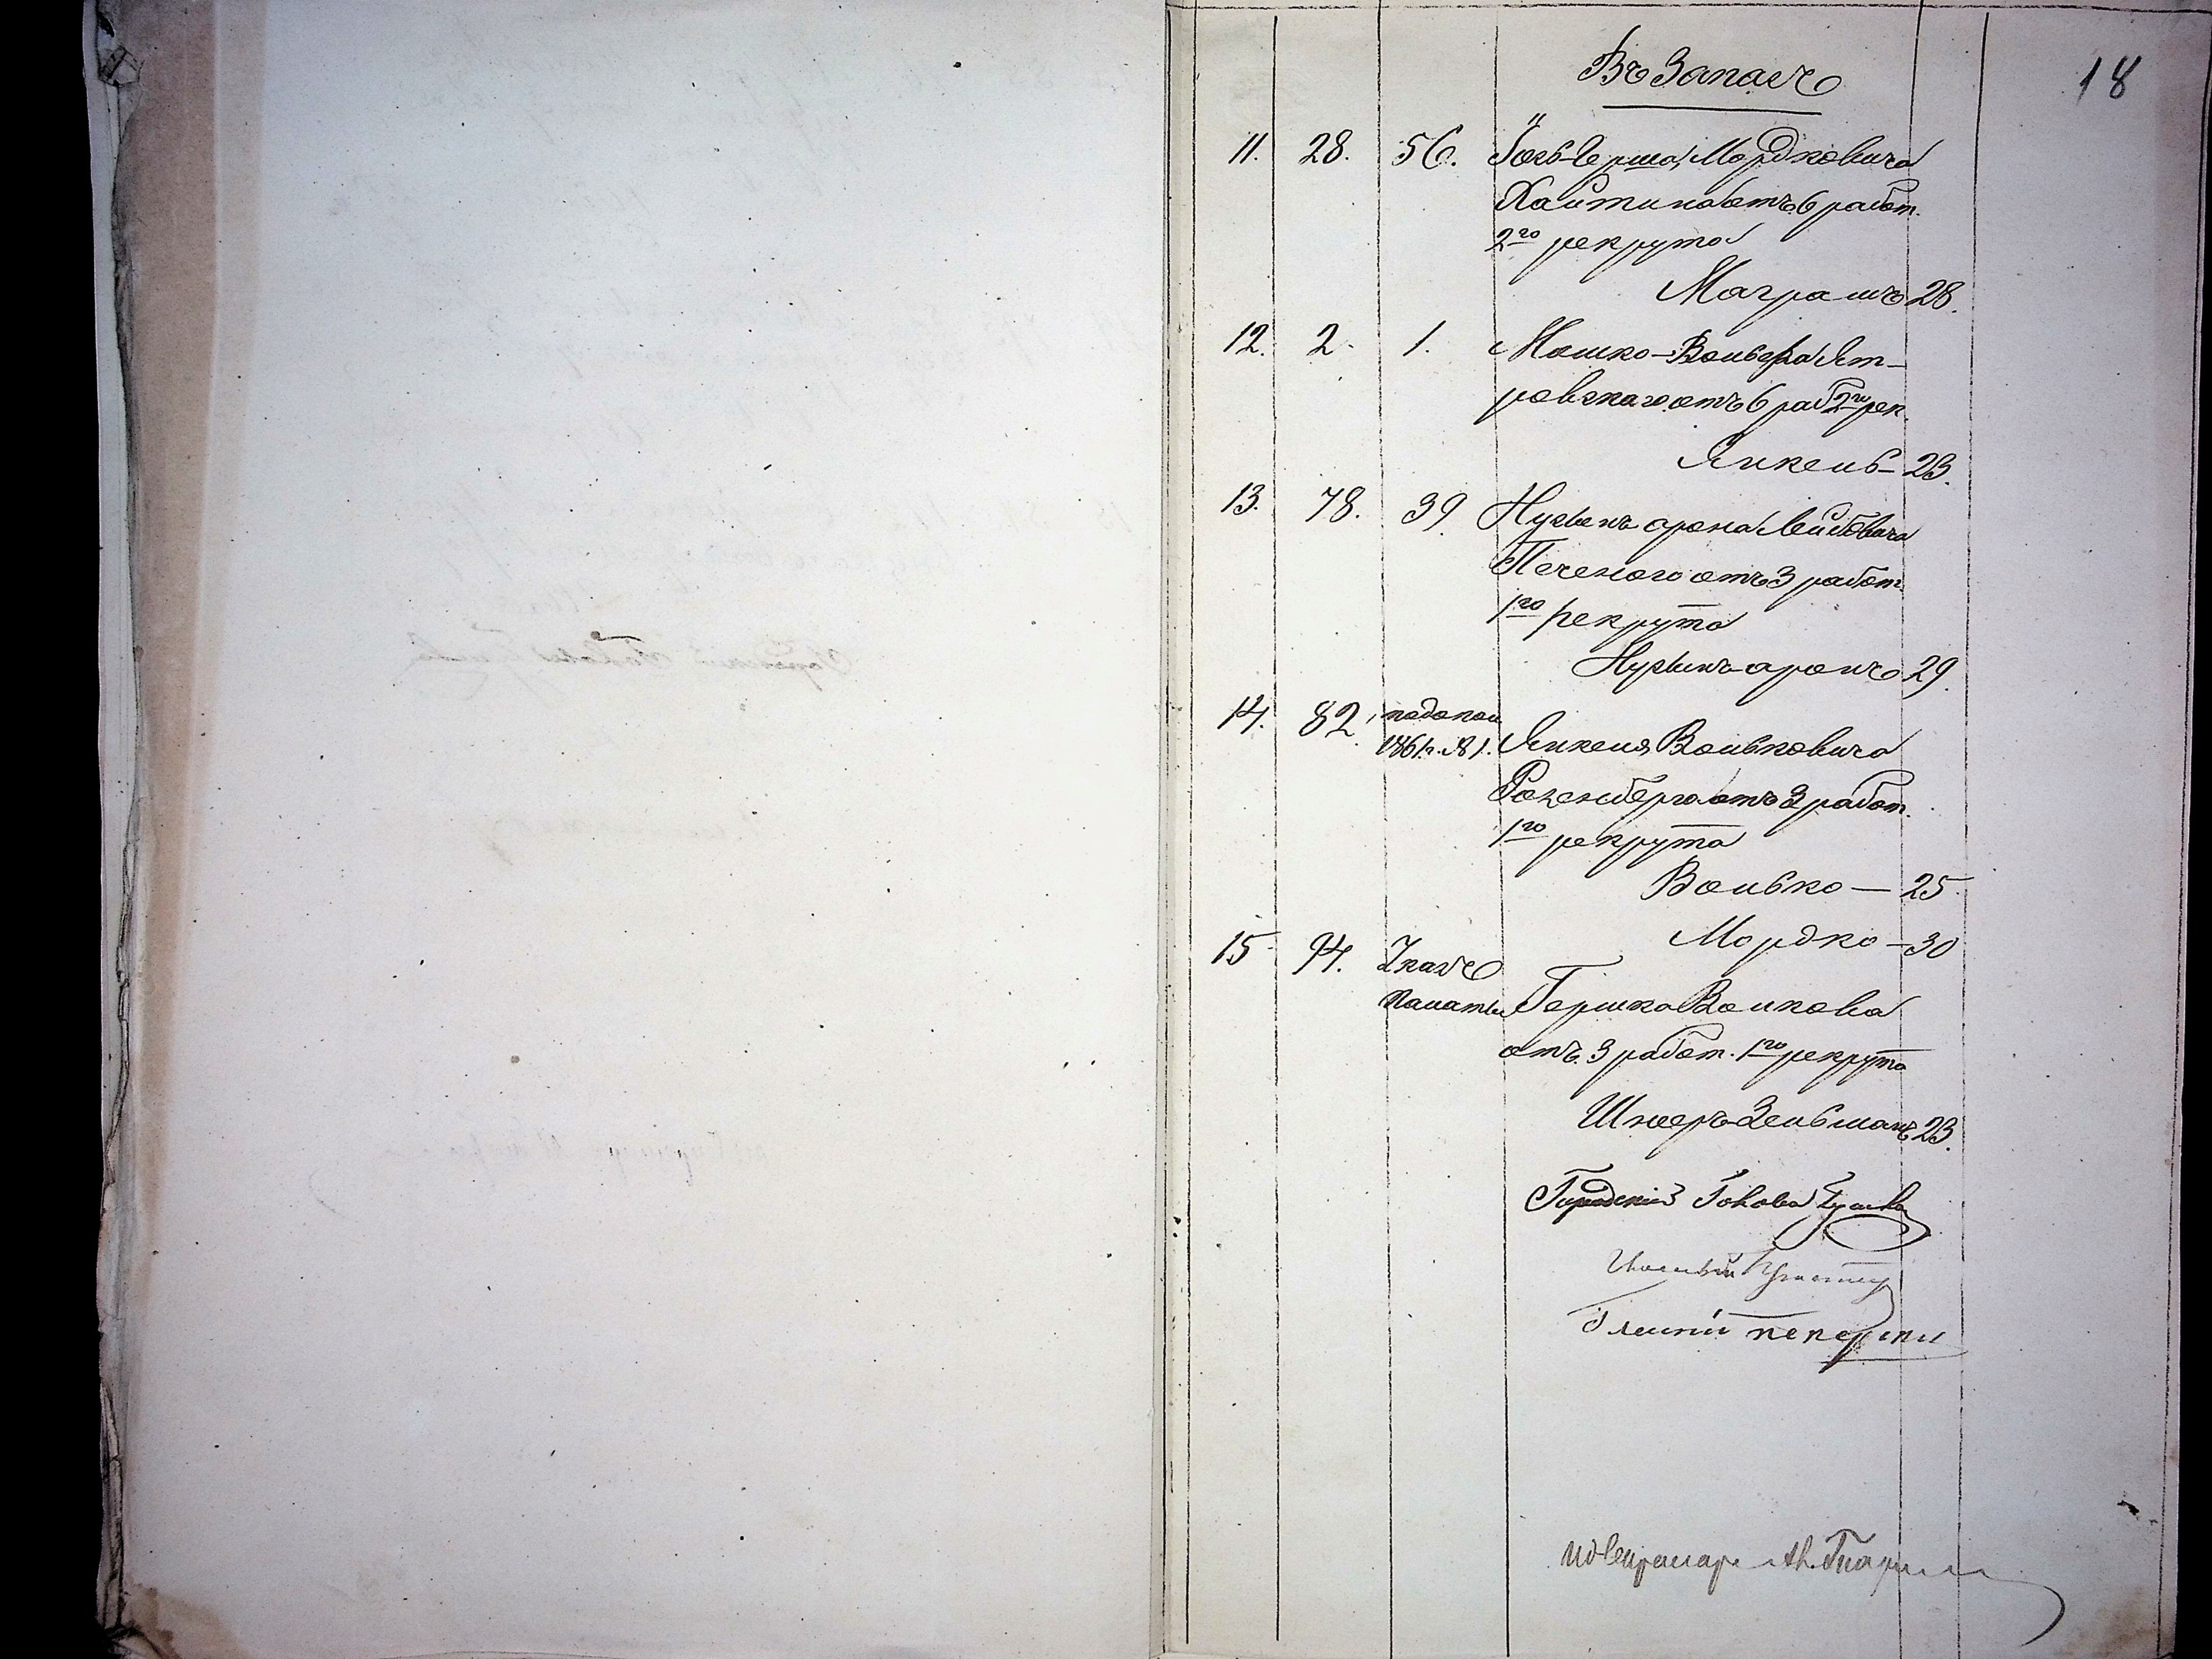 18
Въ Запасъ
11. 28. 56. Іосъ-Герша Мордковича
Хаитина отъ 6 работ.
2го рекрута
28.
12. 2. 1. Мошко-Вольфа Яст-
ровскаго отъ 6 раб 2го рек.
Янкель - 23.
13. 78. 39. Нухимъ арона Лейбовича
Печенаго отъ 3 работ.
1го рекрута
Нухимъ аронъ 29.
14. 82. по допол.
1861 г. № 1. Янкеля Вольковича
Розенберга отъ 3 работ.
1го рекрута
Волько — 25
Мордко - 30
15 94. Указъ
Палаты Гершка Волкова
отъ 3 работ. 1го рекрута
Шнеръ Зельманъ 23.
Городской Голова